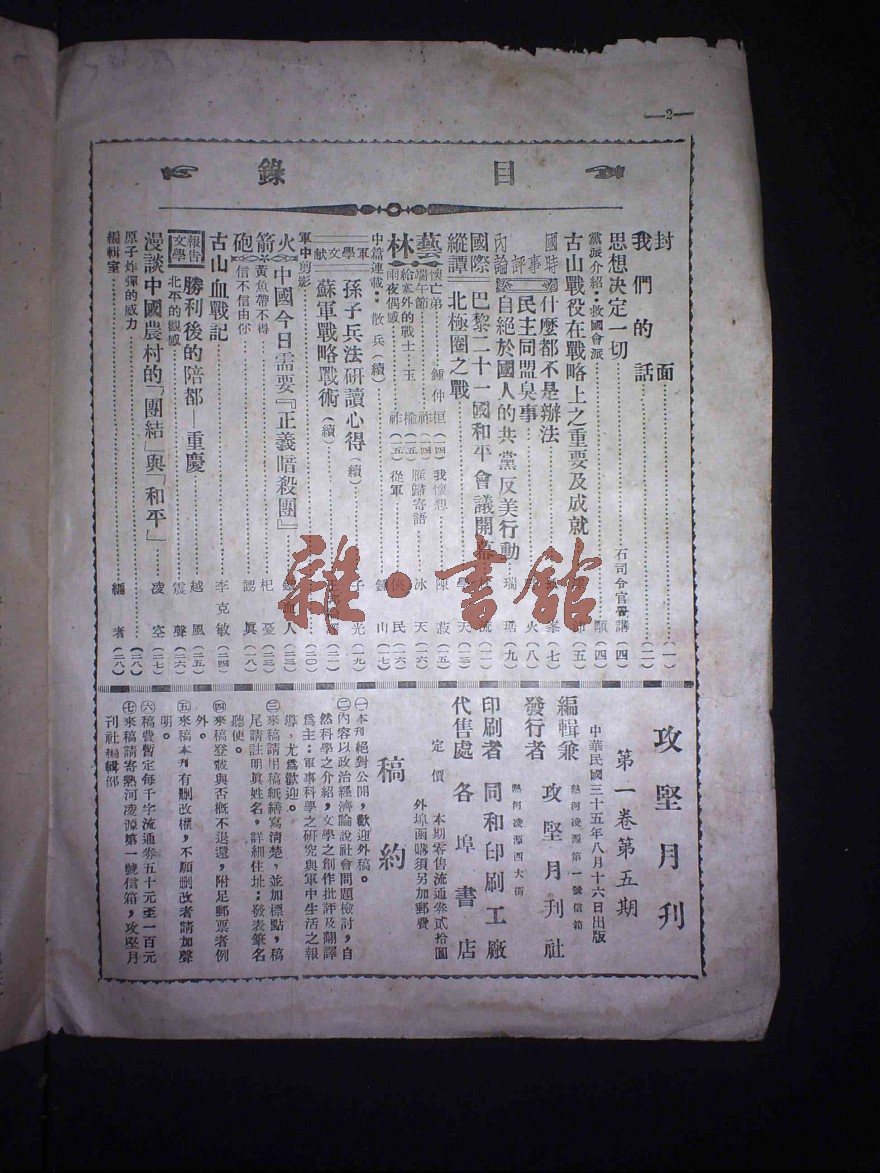 —2—
目 錄
封面
我們的話……(一)
思想決定一切……石司令官覺講(四)
黨派介紹:救國會派……(四)
古山戰役在戰略上之重要及成就……(五)
國內時事評論
什麼都不是辦法……(七)
民主同盟臭事……火(八)
自絕於國人的共黨反美行動……瑞琚(九)
國際縱譚
巴黎二十一國和平會議開幕……(一一)
北極圈之戰……學天(一三)
藝林
懷亡弟……鍾仲桓(一四)
我懷想……陳菽(一五)
端午節……祚(一四)
雁歸寄語……冰天(一六)
給寒外的戰士……玉楡(一五)
從軍……俠民(一六)
雨夜偶感……祚(一五)
中篇連載:散兵(續)……鍾山(一七)
軍學文獻
孫子兵法研讀心得(續)……子光(一九)
蘇軍戰略戰術(續)……(二一)
軍中剪影……(二〇)
火箭砲
中國今日需要『正義暗殺團』……鐵血人(二三)
黃魚帶不得……杞憂(二三)
信不信由你……認眞(一八)
古山血戰記……李克敏(二四)
報告文學
勝利後的陪都—重慶……越風(二五)
北平的觀感……震聲(二六)
漫談中國農村的「團結」與「和平」……凌空(二七)
原子炸彈的威力……(二八)
編輯室……編者(二八)
攻堅月刊
第一卷第五期
中華民國三十五年八月十六日出版
編輯兼發行者
熱河凌源第一號信箱
攻堅月刊社
熱河凌源西大街
印刷者 同和印刷工廠
代售處 各埠書店
定價 本期零售流通劵貳拾圓
外埠函購須另加郵費
稿約
㊀本刊絕對公開,歡迎外稿。
㊁內容以政治經濟論說社會問題檢討,自
然科學之介紹,文學之創作批評及翻譯
爲主:軍事科學之硏究與軍中生活之報
導,尤爲歡迎。
㊂來稿請用稿紙繕寫清楚,並加標點,稿
尾請註明眞姓名。詳細住址;發表筆名
聽便。
㊃來稿登載與否槪不退還,附足郵票者例
外。
㊄來稿本刊有刪改權,不願刪改者請加聲
明。
㊅稿費暫定每千字流通劵五十元至一百元
㊆來稿請寄熱河凌源第一號信箱,攻堅月
刊社編輯部
雜·書館